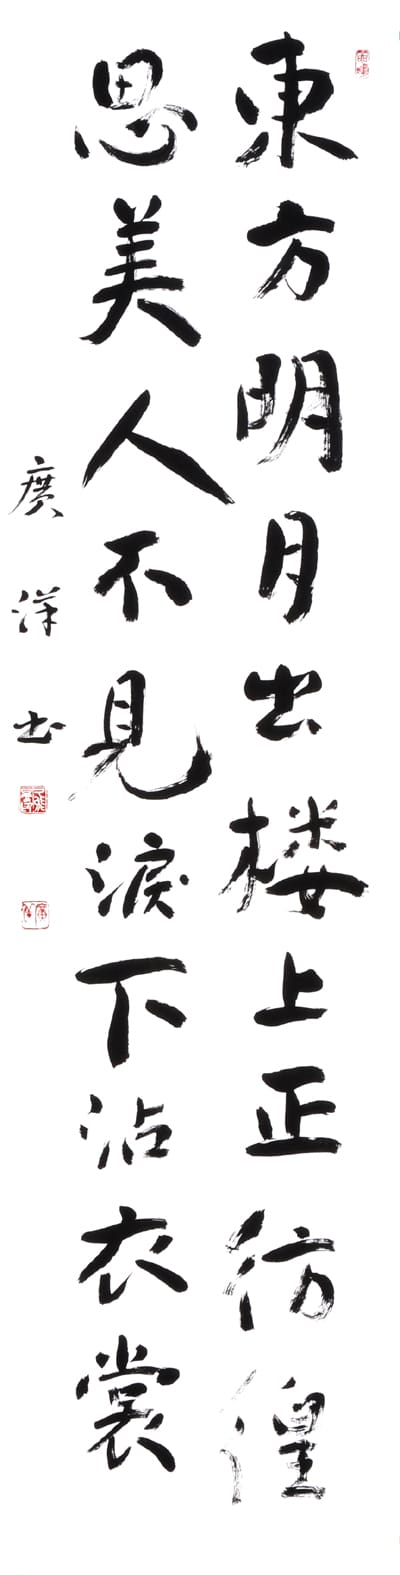 東方明月出楼上正彷徨
思美人不見涙下沾衣裳
廣洋书